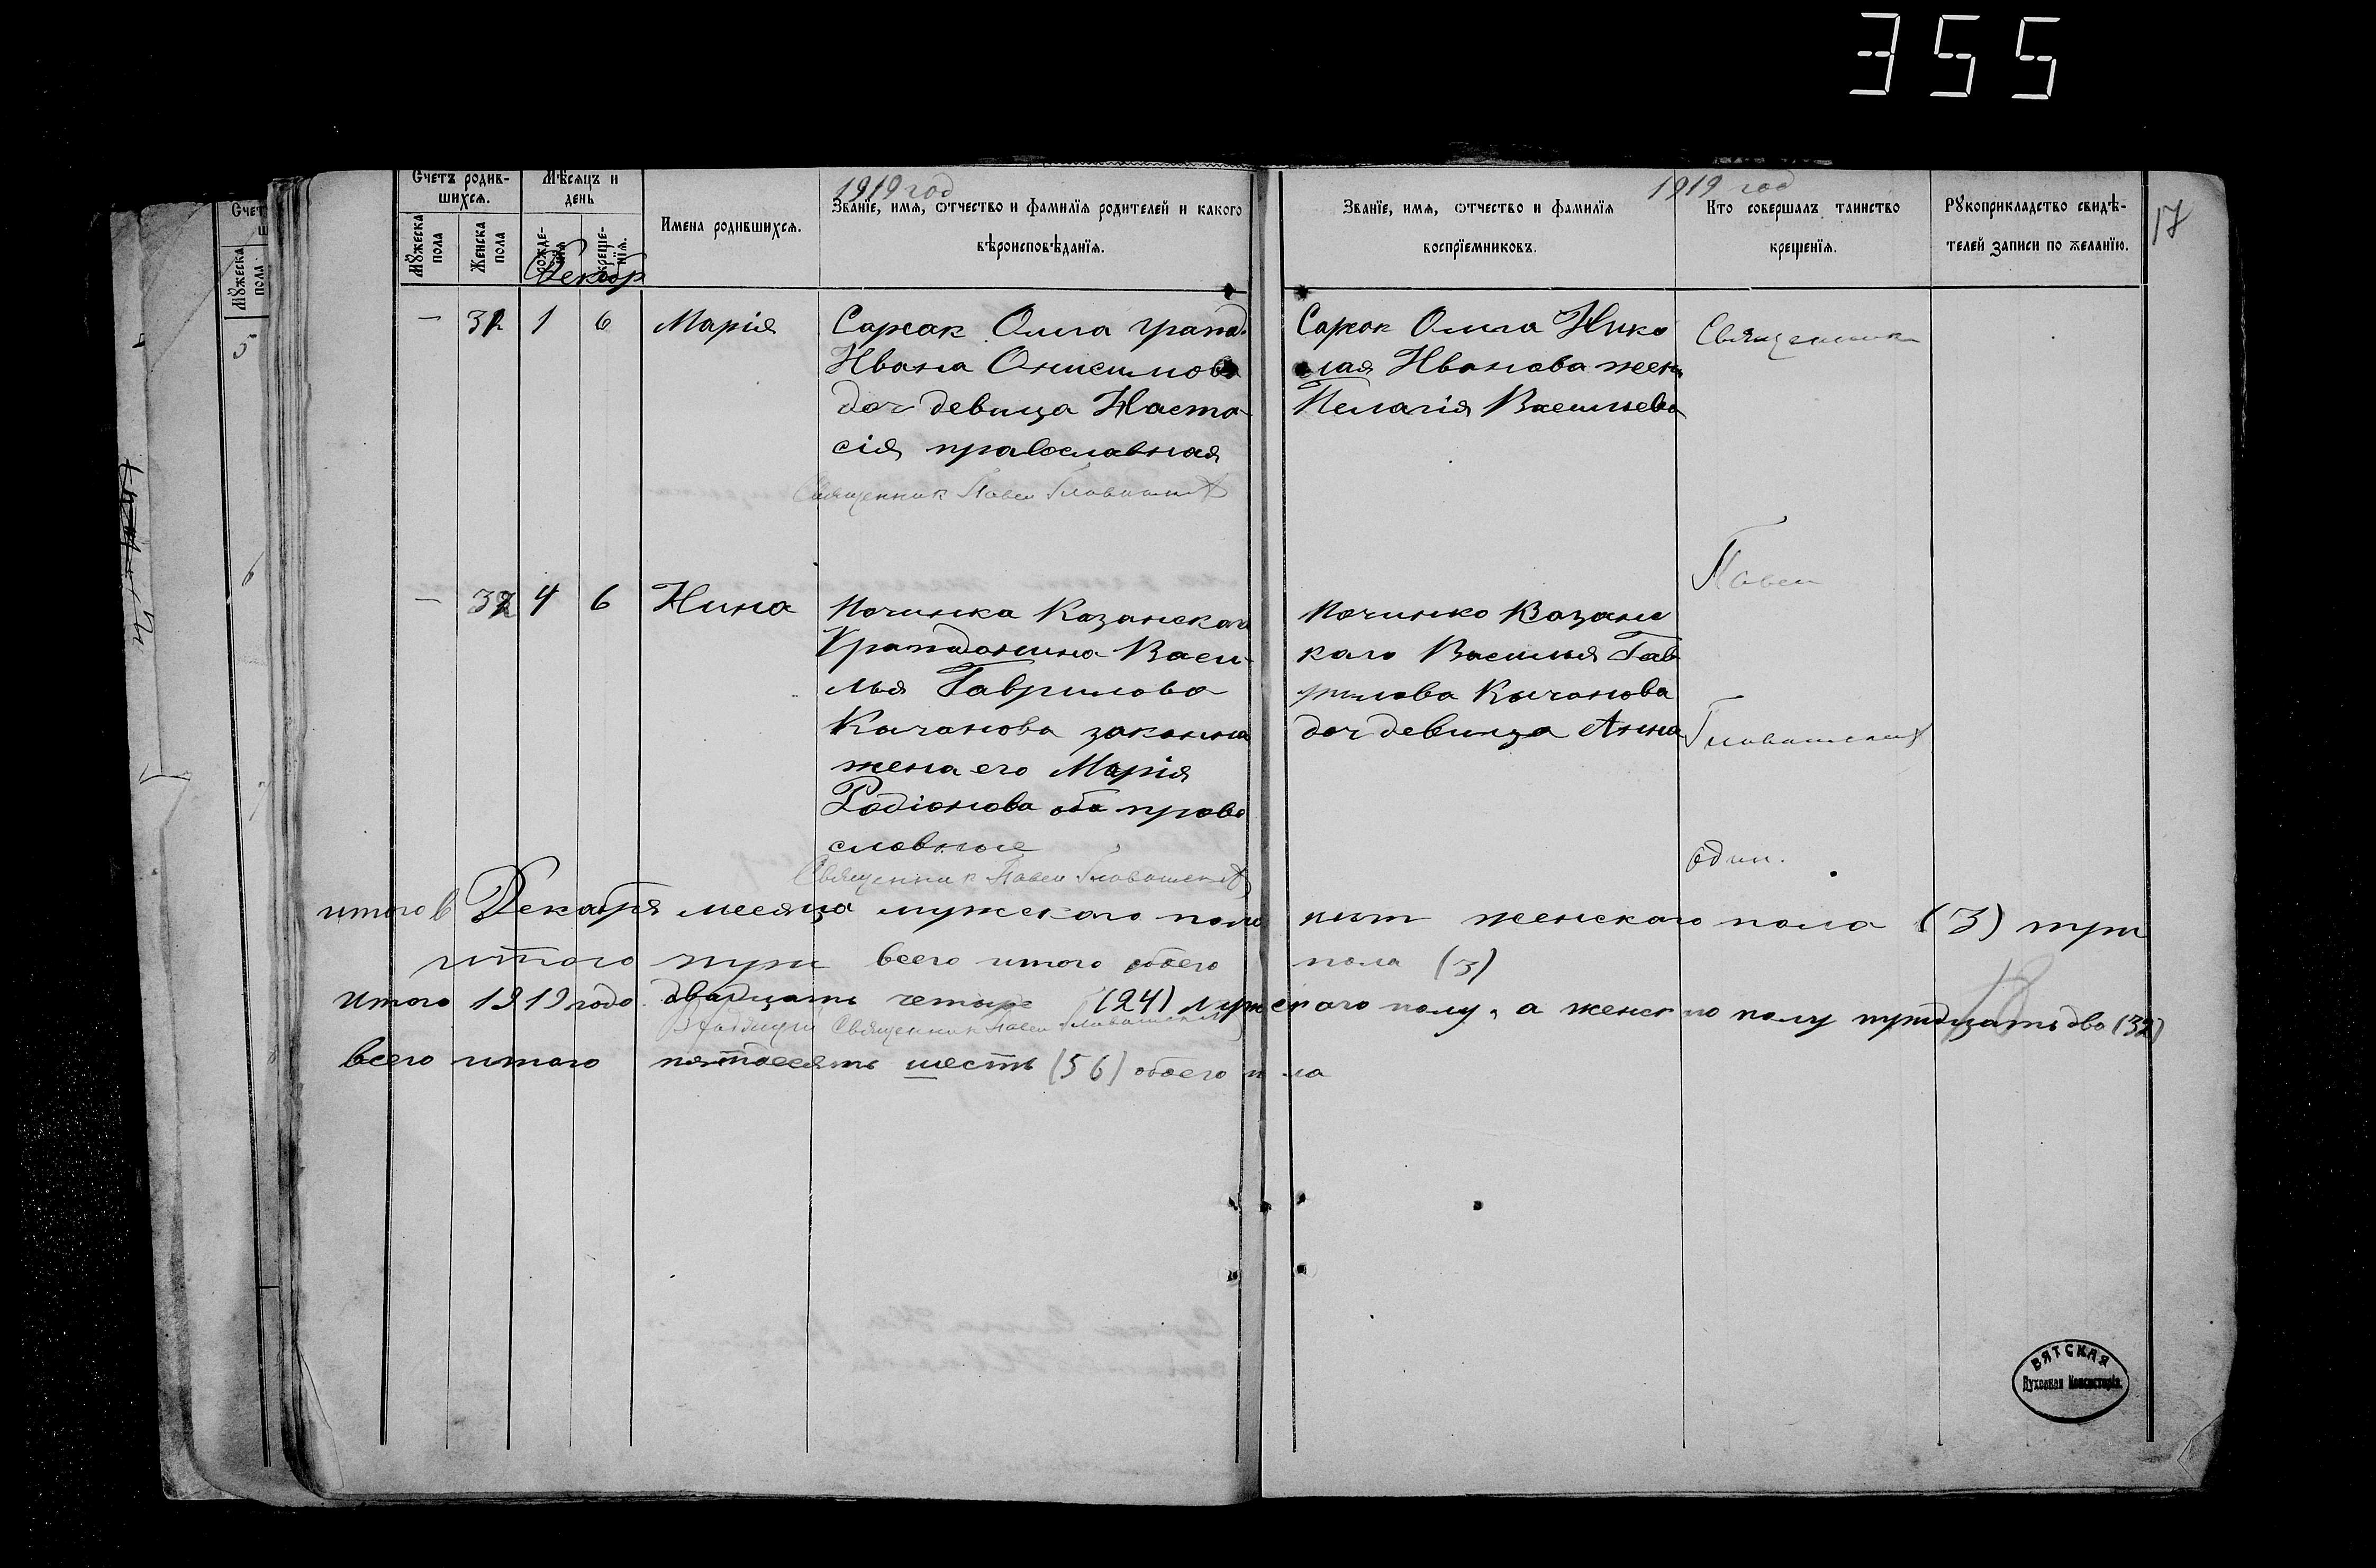 355
1919 год
1919 год
17
Счетъ родив-
шихся.
Мѣсяцъ и
день
Мужеска пола
Женска пола
рожде-
нія
креще-
нія.
Имена родившихся.
Званіе, имя, отчество и фамилія родителей и какого
вѣроисповѣданія.
Званіе, имя, отчество и фамилія
воспріемниковъ.
Кто совершалъ таинство
крещенія.
Рукоприкладство свидѣ-
телей записи по желанію.
Декабр
— 31 1 6 Марія
Сарсак Омга гражд.
Ивана Онисимова
доч девица Наста-
сія православная
Священник Павел
Сарсак Омга Нико
лая Иванова жена
Пелагія Васильева
Священник
Павел
— 32 4 6 Нина
Починка Казанскаго
Гражданина Васи-
лья Гаврилова
Качанова законная
жена его Марія
Родіонова оба право
славные
Священник Павел
Починко Казанс
каго Василья Гав
рилова Качанова
доч девица Анна
один.
итого в Декабря месяца мужскаго пола нит женскаго пола (3) три
итого три всего итого обоего пола (3)
Итого 1919 года двадцать четыре (24) мужскаго полу, а женскаго полу тридцать два (32)
Священник Павел
всего итого пятдесять шесть (56) обоего пола
18
ВЯТСКАЯ
Духовная Консисторія
Счет
Мужеска пола
5
6
7